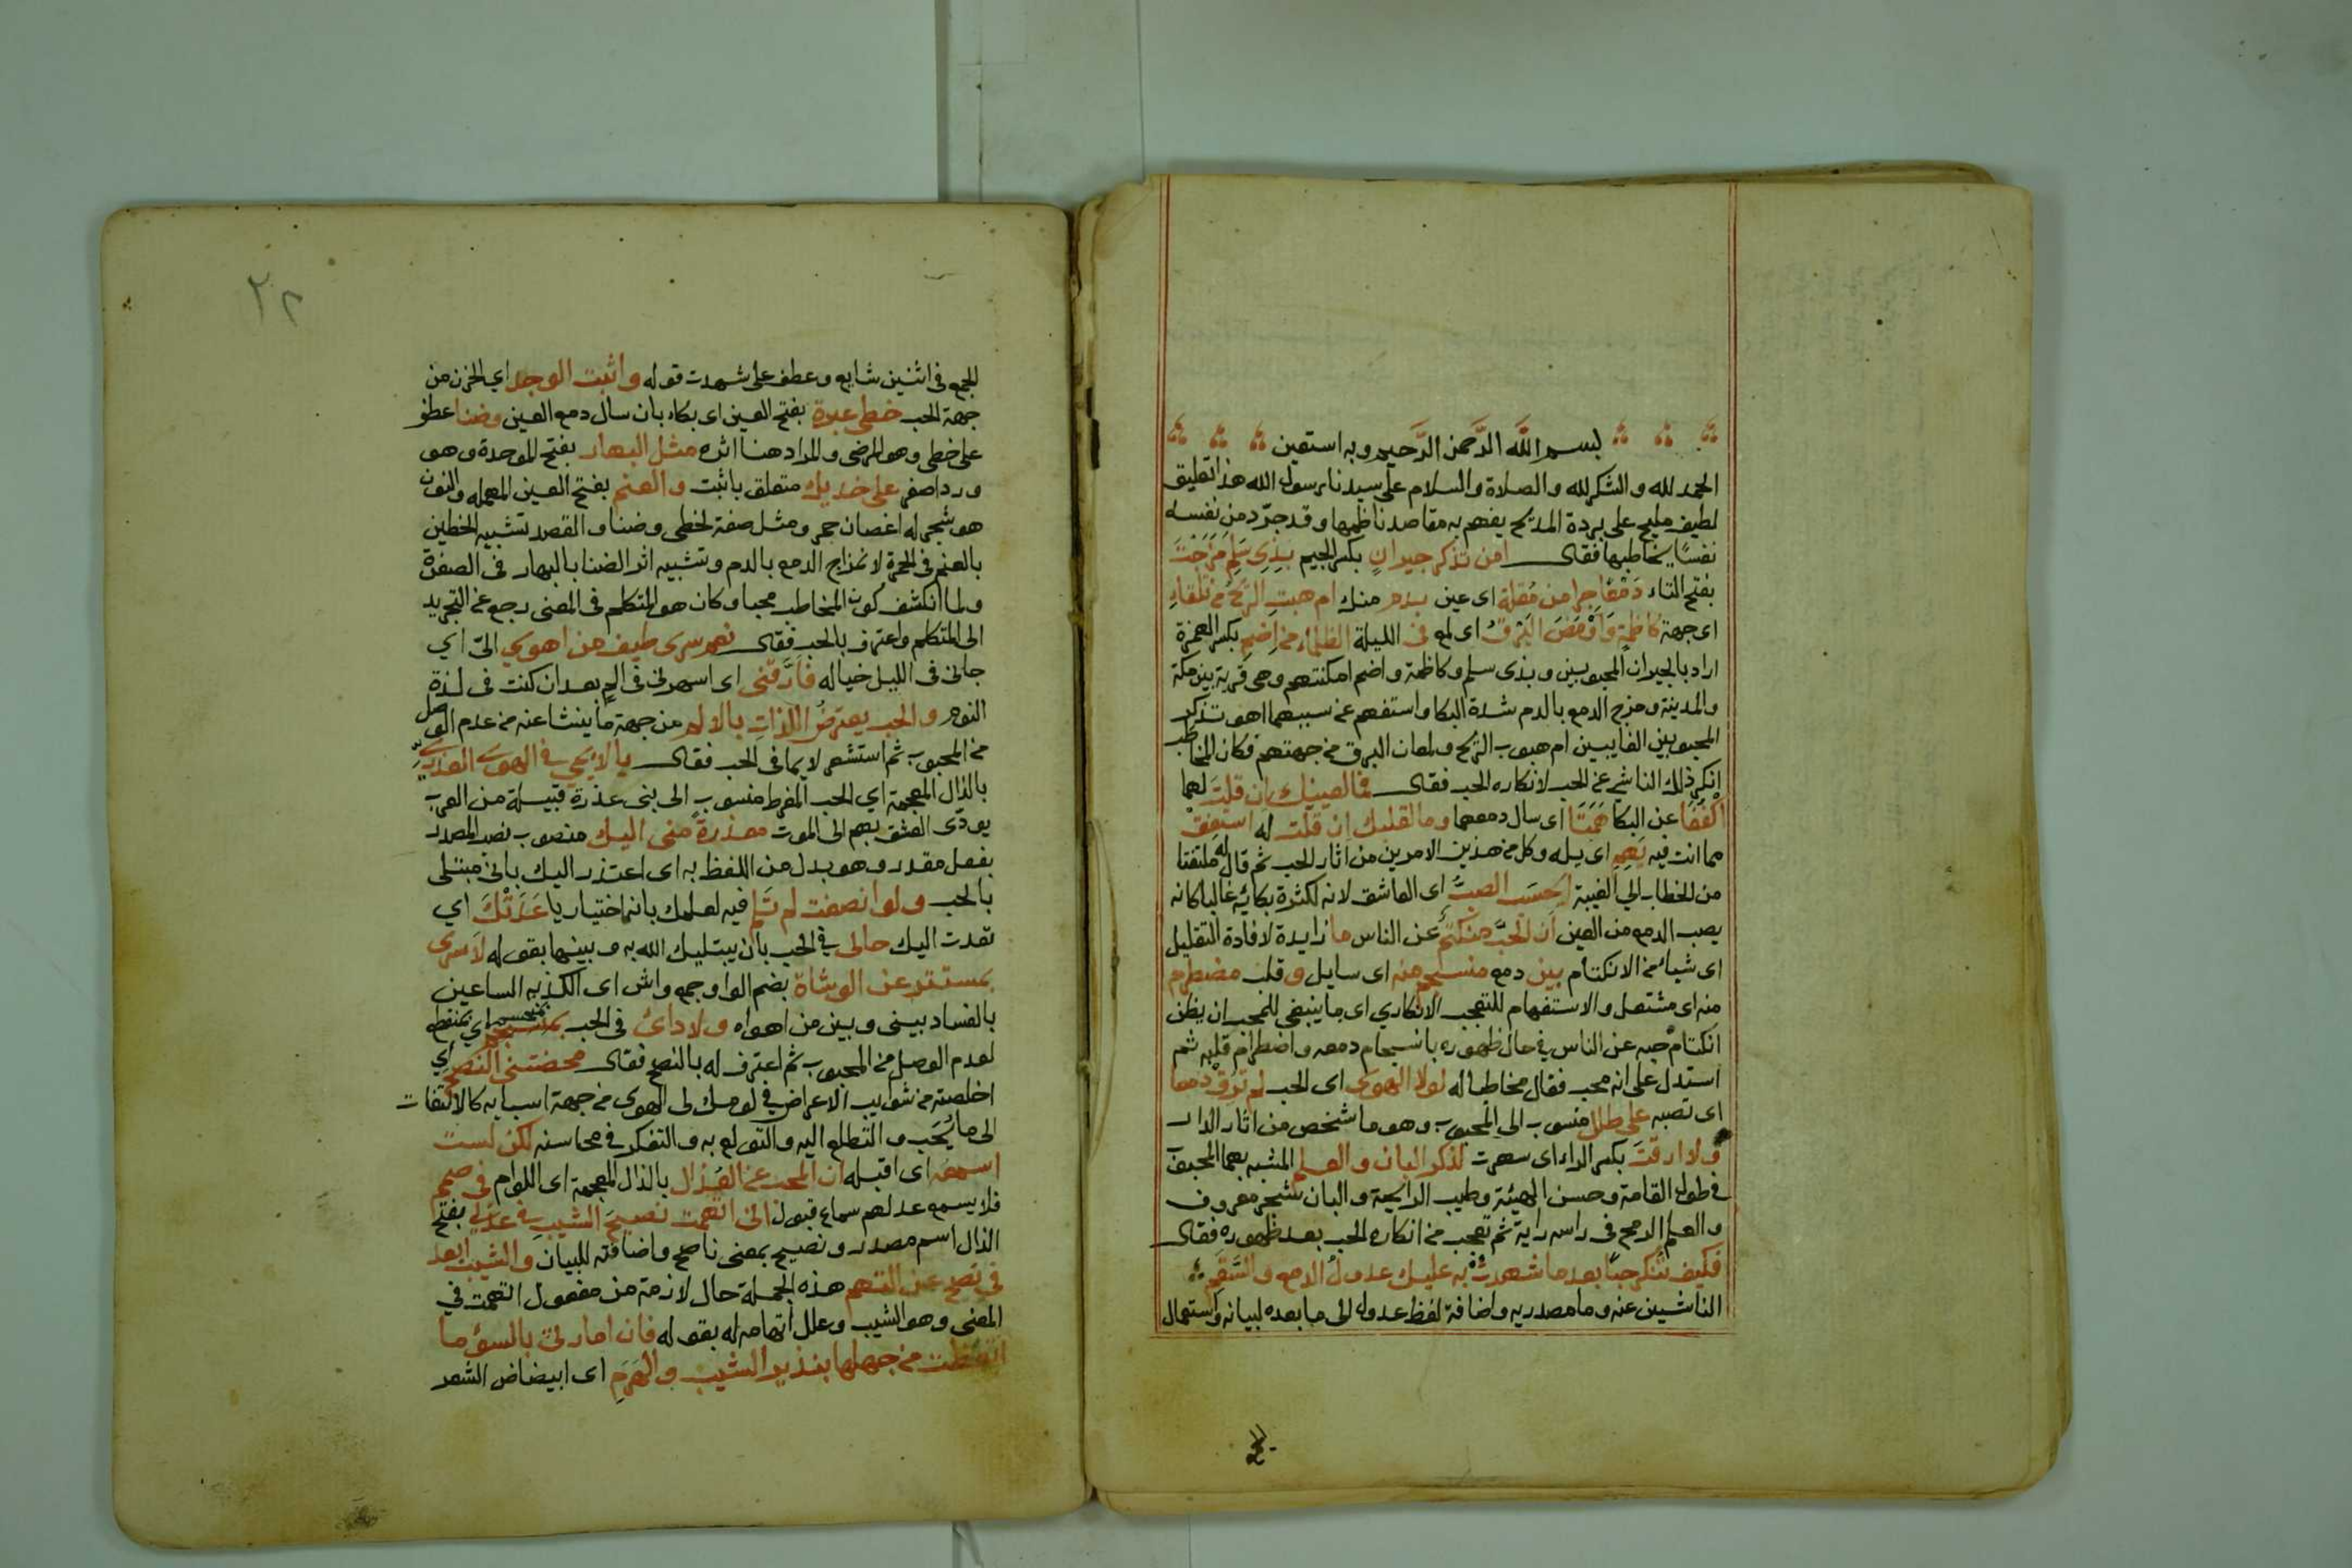 بسم الله الرحمن الرحيم وبه استعين
الحمد لله والشكر لله والصلاة والسلام على سيدنا رسول الله هذا تعليق
لطيف مليح على بردة المديح يفهم به مقاصد ناظمها وقد جرد من نفسه
نفسا يخاطبها فقال امن تذكر جيران بكسر الجيم بذي سلم مزجت
بفتح التاء دمعا جرا من مقلة اى عين بدم منك ام هبت الريح من تلقاء
اى جهة كاظمة وأومض البرق اى لمع فى الليلة الظلماء من إضم بكسر الهمزة
اراد بالجيران المحبوبين وبذى سلم وكاظمة واضم امكنتهم وهى قرية بين مكة
والمدينة ومزج الدمع بالدم شدة البكا واستفهم عن سببهما اهو تذكر
المحبوبين الغايبين ام هبوب الريح ولمعان البرق من جهتهم فكان المخاطب
انكر ذلك الناشي عن الحب لانكاره الحب فقال فما لعينيك ان قلت لهما
اكففا عن البكا همتا اى سال دمعهما وما لقلبك ان قلت له استفق
مما انت فيه يهم اى يله وكل من هذين الامرين من اثار الحب ثم قال له ملتفتا
من الخطاب الى الغيبة ايحسب الصب اى العاشق لانه لكثرة بكائه غالبا كانه
يصب الدمع من العين ان الحب منكتم عن الناس ما زايدة لافادة التقليل
اى شيا من الانكتام بين دمع منسجم منه اى سايل وقلب مضطرم
منه اى مشتعل والاستفهام للتعجب الانكاري اى ما ينبغي للمحب ان يظن
انكتام حبه عن الناس في حال ظهوره بانسجام دمعه واضطرام قلبه ثم
استدل على انه محب فقال مخاطبا له لولا الهوى اى الحب لم ترق دمعا
اى تصبه على طلل منسوب الى المحبوب وهو ما شخص من اثار الدار
ولا ارقت بكسر الراء اى سهرت لذكر البان والعلم المشبه بهما المحبوب
فى طول القامة وحسن الهيئة وطيب الرايحة والبان شجر معروف
والعلم الرمح فى راسه راية ثم تعجب من انكاره الحب بعد ظهوره فقال
فكيف تنكر حبا بعد ما شهدت به عليك عدول الدمع والسقم
الناشين عنه وما مصدريه واضافة لفظ عدول الى ما بعده لبيانه واستعمال
٢٢
الجمع فى اثنين شايع وعطف على شهدت قوله واثبت الوجد اي الحزن من
جهة الحب خطى عبرة بفتح العين اى بكاء بان سال دمع العين وضنا عطف
على خطى وهو المرض والمراد هنا اثره مثل البهار بفتح الموحدة وهو
ورد اصفر على خديك متعلق باثبت والعنم بفتح العين المهمله والنون
هو شجر له اغصان حمر ومثل صفة لخطى وضنا والقصد تشبيه الخطين
بالعنم فى الحمرة لانمزاج الدمع بالدم وتشبيه اثر الضنا بالبهار فى الصفرة
ولما انكشف كون المخاطب محبا وكان هو المتكلم فى المعنى رجع عن التجريد
الى المتكلم واعترف بالحب فقال نعم سرى طيف من اهوي الىّ اي
جانى فى الليل خياله فأرقنى اى اسهرنى فى الم بعد ان كنت فى لذة
النوم والحب يعترض اللذات بالالم من جهة ما ينشا عنه من عدم الوصل
من المحبوب ثم استشعر لايما فى الحب فقال يا لايمي في الهوى العذري
بالذال المعجمة اي الحب المفرط منسوب الى بنى عذرة قبيلة من العرب
يودى العشق بهم الى الموت معذرة منى اليك منصوب نصب المصدر
بفعل مقدر وهو بدل من اللفظ به اى اعتذر اليك بانى مبتلى
بالحب ولو انصفت لم تلم فيه لعلمك بانه اختيار يا عدتك اي
تعدت اليك حالى في الحب بان يبتليك الله به وبينها بقوله لا سرى
بمستتر عن الوشاة بضم الواو جمع واش اى الكذبه الساعين
بالفساد بينى وبين من اهواه ولا دائ فى الحب بمنحسم اي بمنقطع
لعدم الوصل من المحبوب ثم اعترف له بالنصح فقال محضتنى النصح اي
اخلصته من شوايب الاعراض في لومك لى الهوى من جهة اسبابه كالالتفات
الى ما يُحَب والتطلع اليه والتولع به والتفكر في محاسنه لكن لست
اسمعه اى اقبله ان المحب عن العذال بالذال المعجمة اى اللوام فى صمم
فلا يسمع عدلهم سماع قبول انى اتهمت نصيح الشيب في عذلى بفتح
الذال اسم مصدر ونصيح بمعنى ناصح واضافته للبيان والشيب ابعد
فى نصح عن التهم هذه الجملة حال لازمة من مفعول اتهمت في
المعنى وهو الشيب وعلل اتهامه له بقوله فان امارتى بالسؤ ما
اتعظت من جهلها بنذير الشيب والهرم اى ابيضاض الشعر